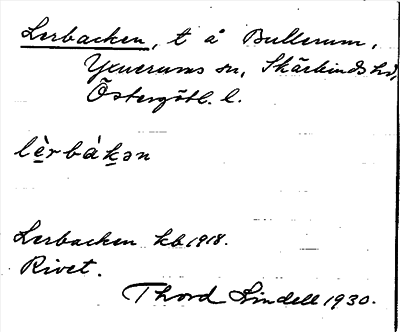 Lerbacken, t å Bullerum,
Yxnerums sn, Skärkinds hd,
Östergötl. l.
lèrbákən
Lerbacken kb 1918.
Rivet.
Thord Lindell 1930.